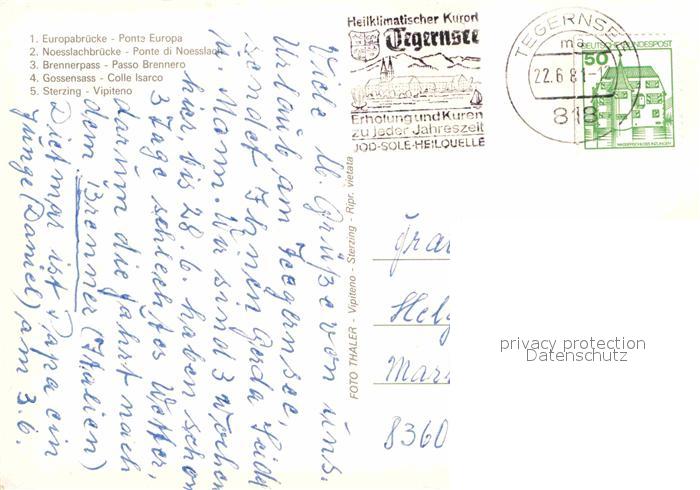 1. Europabrücke - Ponte Europa
2. Noesslachbrücke - Ponte di Noesslach
3. Brennerpass - Passo Brennero
4. Gossensass - Colle Isarco
5. Sterzing - Vipiteno
Heilklimatischer Kurort
Tegernsee
Erholung und Kuren
zu jeder Jahreszeit
JOD-SOLE-HEILQUELLE
TEGERNSEE
22.6.81-1
818
DEUTSCHE BUNDESPOST
50
WASSERSCHLOSS INZLINGEN
Viele lb. Grüße von uns.
Urlaub am Teegernsee,
sendet Ihnen Gerda Seidl
u. Mann. Wir sind 3 Wochen
hier bis 28.6. haben schon
3 Tage schlechtes Wetter,
darum die Fahrt nach
dem Brenner (Italien)
Dietmar ist Papa ein
Junge (Daniel) am 3.6.
FOTO THALER - Vipiteno - Sterzing - Ripr. vietata
Frau
Helg
Mar
8360
privacy protection
Datenschutz